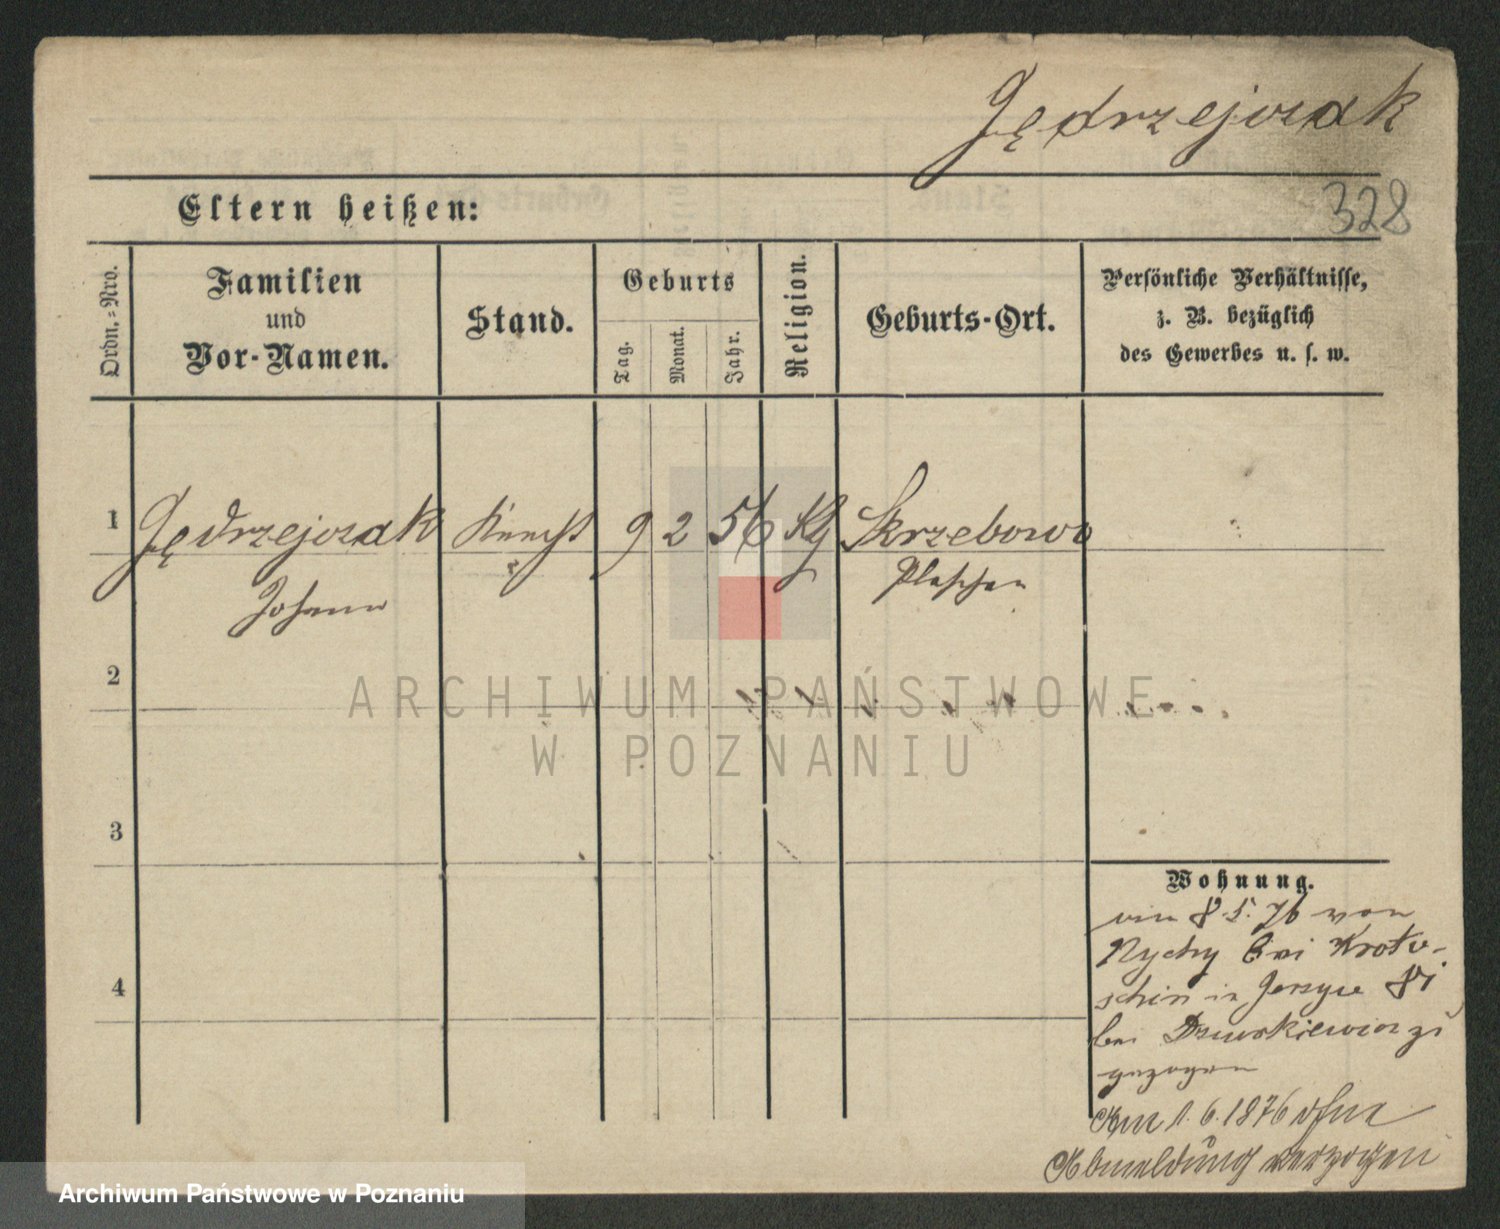 Jędrzejczak
328
Eltern heißen:
Ordn.-Nro.
Familien
und
Vor-Namen.
Stand.
Geburts
Tag.
Monat.
Jahr.
Religion.
Geburts-Ort.
Persönliche Verhältnisse,
z. B. bezüglich
des Gewerbes u. s. w.
1 Jędrzejczak Knecht 9 2 56 Kg Skrzebowo
Johann Pleschen
2
ARCHIWUM PAŃSTWOWE
W POZNANIU
3
4
Wohnung.
am 8.5.76 von
bei Kroto-
schin in Jerzyce 81
bei
gezogen
Am 1.6.1876 ohne
Abmeldung verzogen
Archiwum Państwowe w Poznaniu